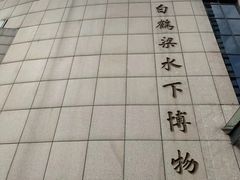 白鹤梁水下博物